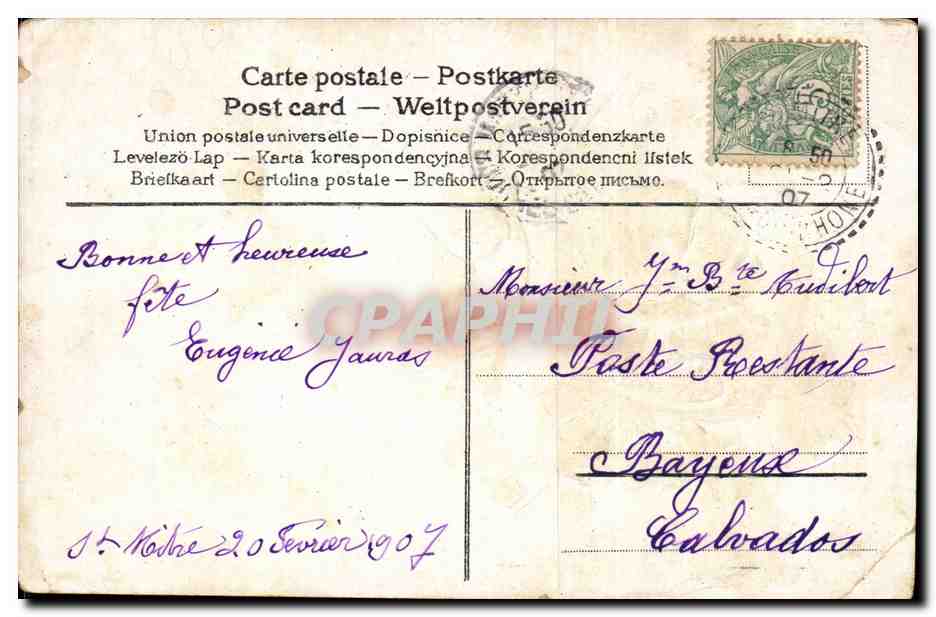 Carte postale – Postkarte
Post card — Weltpostverein
Union postale universelle — Dopisnice — Correspondenzkarte
Levelező-Lap — Karta korespondencyjna — Korespondencni listek
Briefkaart — Cartolina postale — Brefkort — Открытое письмо.
8 50
07
RHONE
Bonne et heureuse
fête
Eugénie Jauras
St Mitre 20 Février 1907
Monsieur Jn Bte Audibert
Poste Restante
Bayeux
Calvados
CPAPHIL